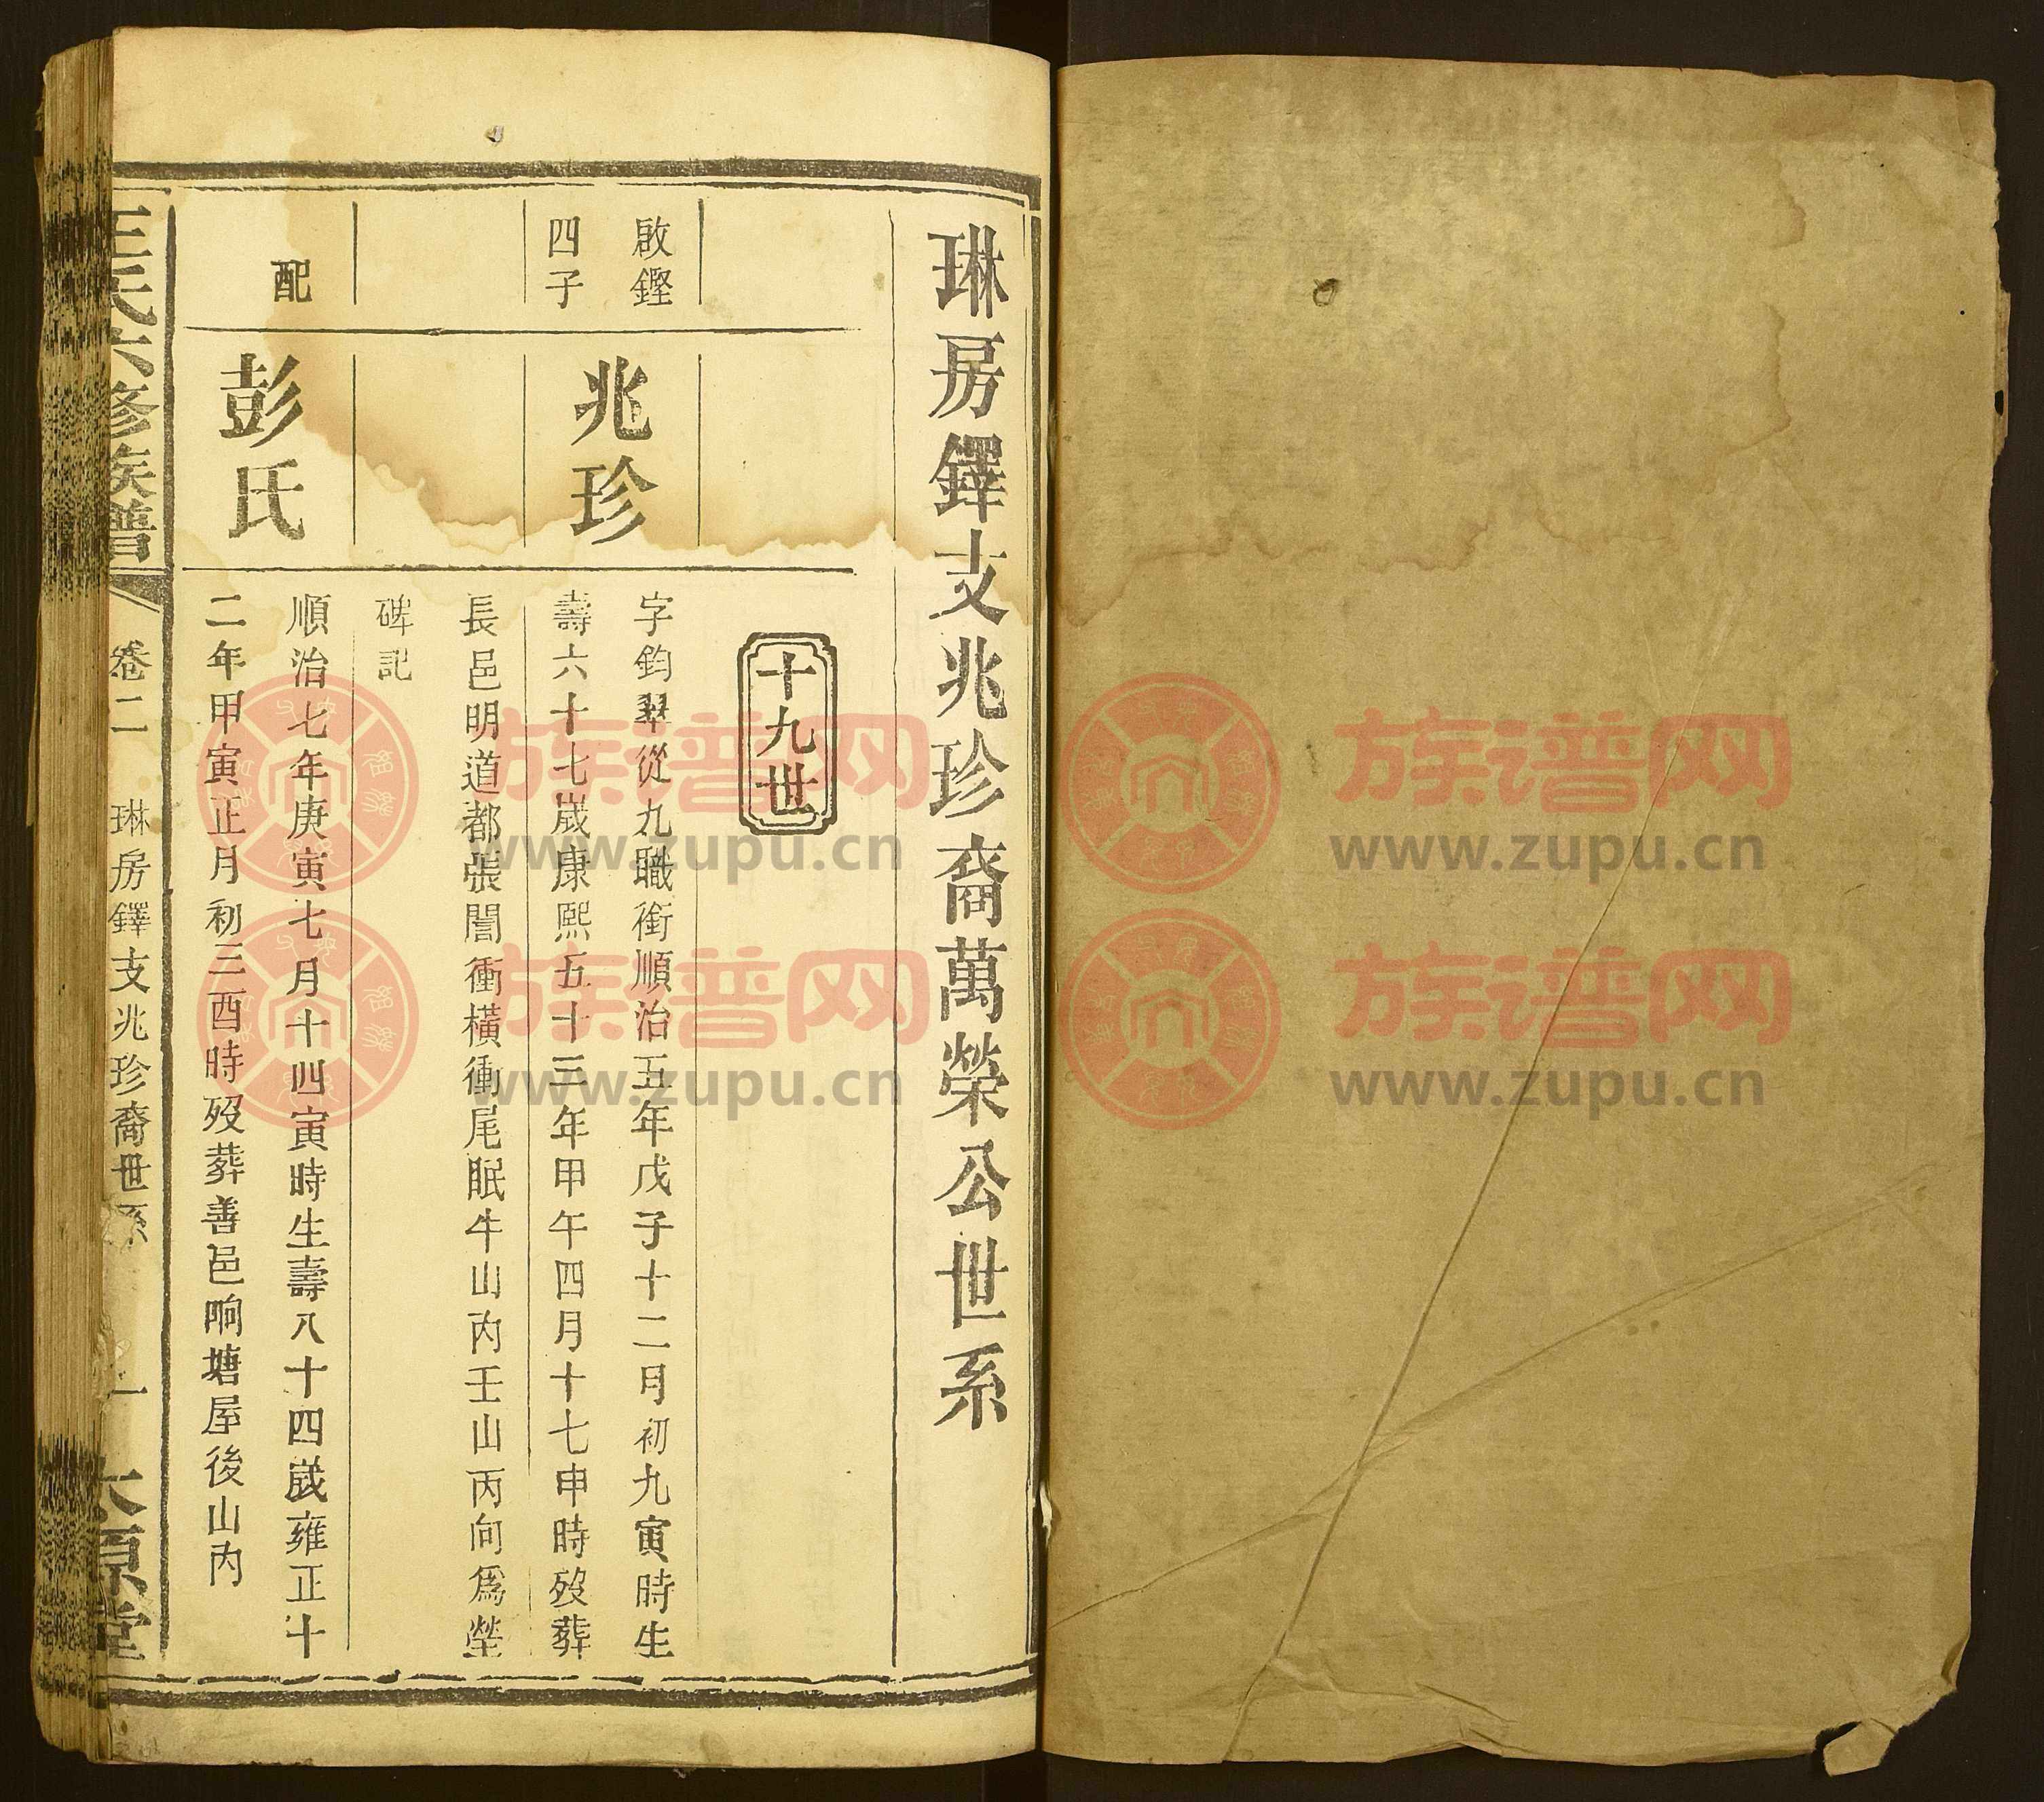 琳房鐸支兆珍裔萬榮公世系
十九世
啟鏗
四子
兆珍
字鈞翠從九職銜順治五年戊子十二月初九寅時生
壽六十七歲康熙五十三年甲午四月十七申時歿葬
長邑明道都張誾衝橫衝尾眠牛山內壬山丙向為塋
碑記
配
彭氏
順治七年庚寅七月十四寅時生壽八十四歲雍正十
二年甲寅正月初三酉時歿葬善邑晌塘屋後山內
王氏六修族譜
卷二
琳房鐸支兆珍裔世系
一
太原堂
族谱网
www.zupu.cn
族谱网
www.zupu.cn
族谱网
www.zupu.cn
族谱网
www.zupu.cn